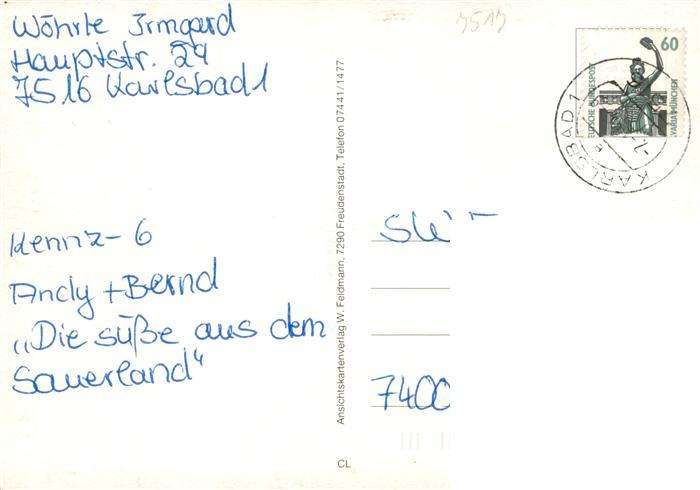 Wöhrle Irmgard
Hauptstr. 29
7516 Karlsbad 1
Kennz-6
Andy + Bernd
„Die süße aus dem
Sauerland“
Ansichtskartenverlag W. Feldmann, 7290 Freudenstadt, Telefon 07441/1477
CL
60
DEUTSCHE BUNDESPOST
BAVARIA MÜNCHEN
KARLSBAD 1
7400